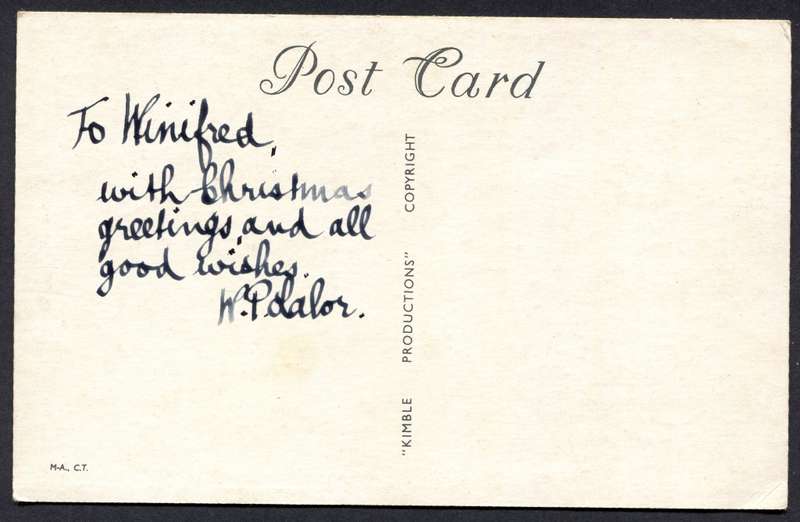 Post Card
To Winifred,
with Christmas
greetings, and all
good wishes.
W.P. Lalor.
"KIMBLE PRODUCTIONS" COPYRIGHT
M-A., C.T.